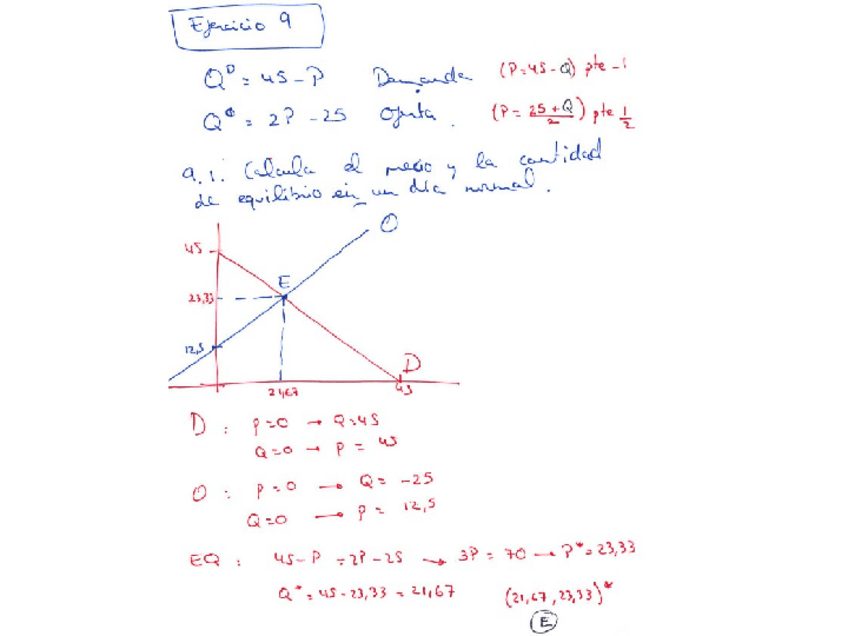 Ejercicio 9
Q^D = 45 - P Demanda (P=45-Q) pte -1
Q^O = 2P - 25 Oferta. (P = 25+Q/2) pte 1/2
9.1. Calcula el precio y la cantidad
de equilibrio en un día normal.
O
45
E
23,33
12,5
D
21,67
45
D : P=0 → Q=45
Q=0 → P = 45
O : P=0 → Q = -25
Q=0 → P = 12,5
EQ : 45-P = 2P-25 → 3P = 70 → P* = 23,33
Q* = 45-23,33 = 21,67 (21,67, 23,33)*
E